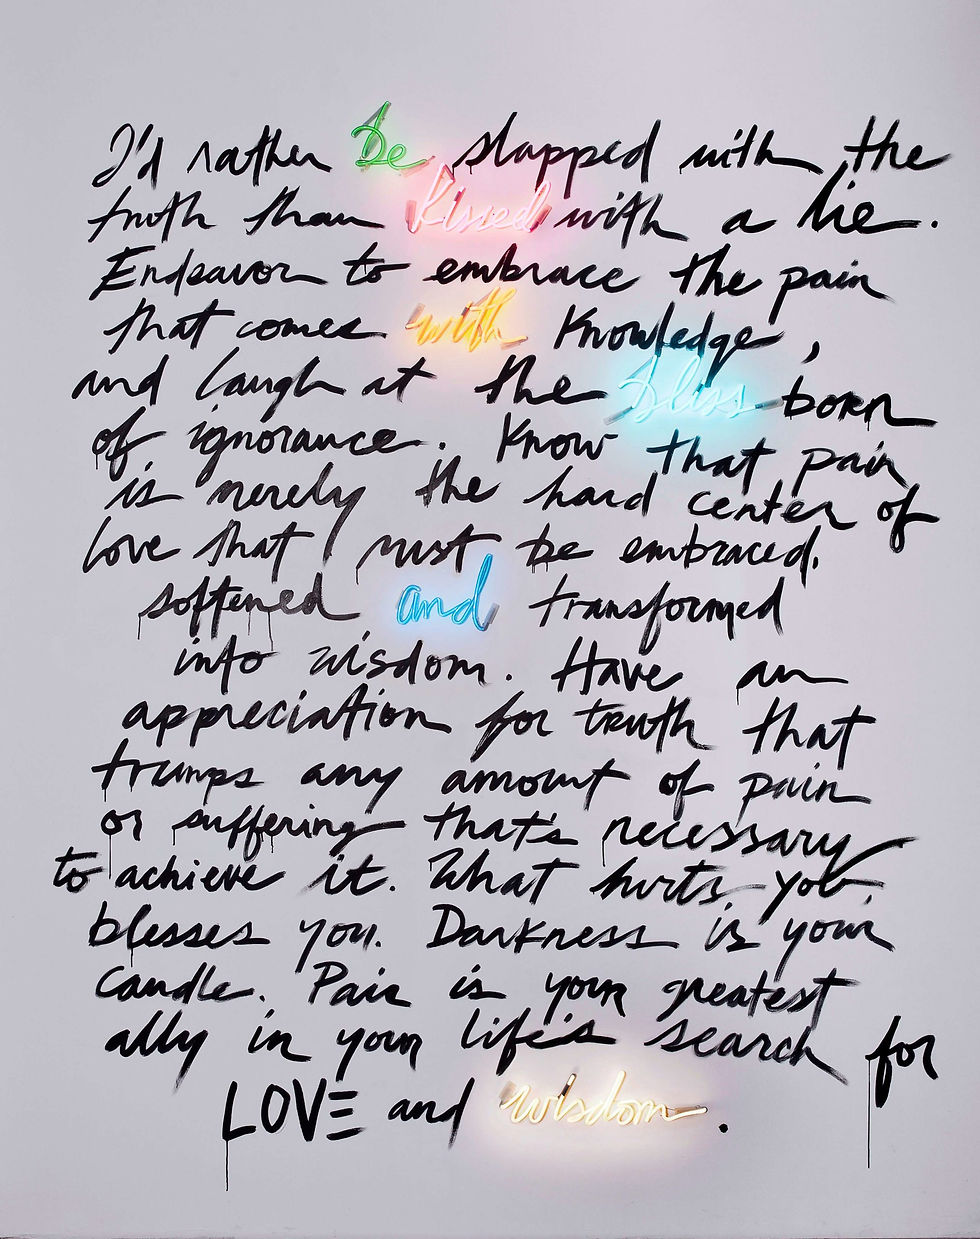 I'd rather be slapped with the
truth than kissed with a lie.
Endeavor to embrace the pain
that comes with knowledge,
and laugh at the bliss born
of ignorance. Know that pain
is merely the hard center of
love that must be embraced,
softened and transformed
into wisdom. Have an
appreciation for truth that
trumps any amount of pain
or suffering that's necessary
to achieve it. What hurts you
blesses you. Darkness is your
candle. Pain is your greatest
ally in your life's search for
LOVE and wisdom.